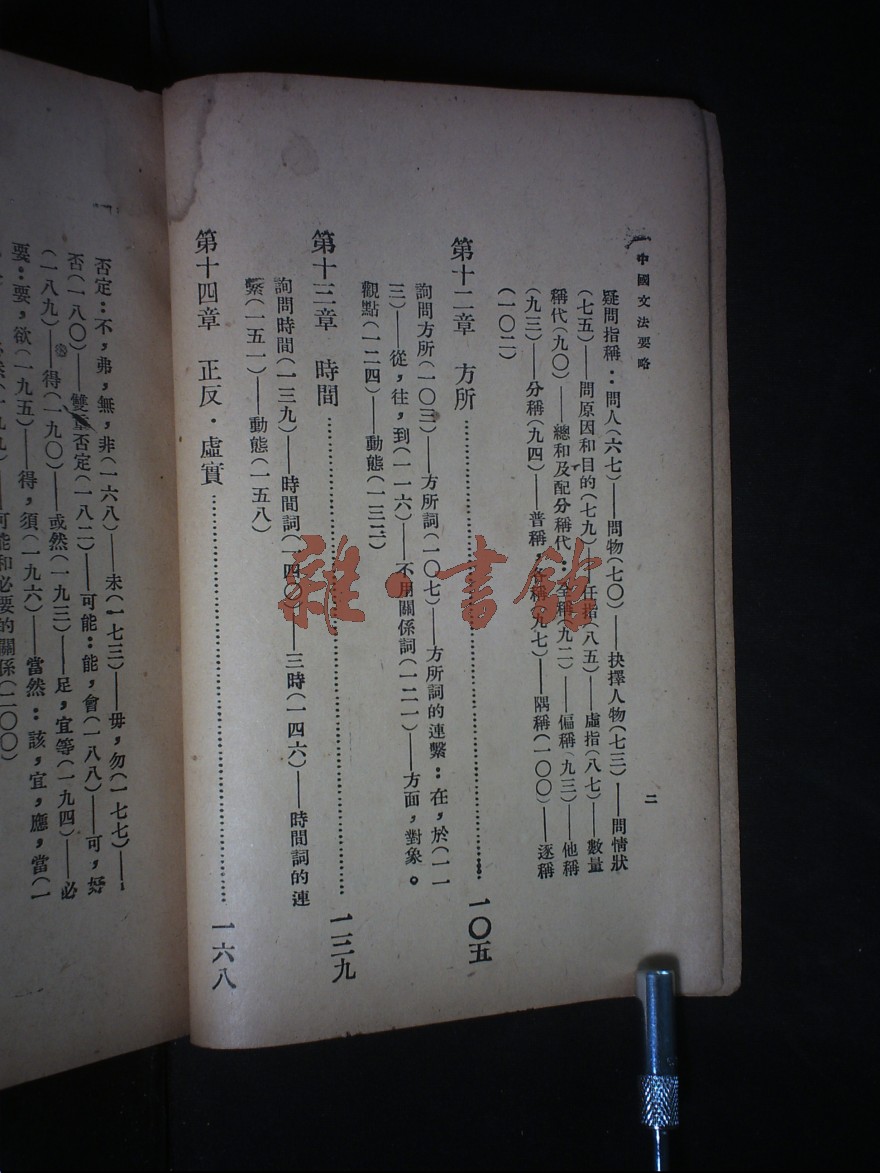 中國文法要略
二
疑問指稱：問人(六七)——問物(七〇)——抉擇人物(七三)——問情狀
(七五)——問原因和目的(七九)——任指(八五)——虛指(八七)——數量
稱代(九〇)——總和及配分稱代：全稱(九二)——偏稱(九三)——他稱
(九三)——分稱(九四)——普稱，各稱(九七)——隅稱(一〇〇)——逐稱
(一〇二)
第十二章 方所……一〇五
詢問方所(一〇三)——方所詞(一〇七)——方所詞的連繫：在，於(一一
三)——從，往，到(一一六)——不用關係詞(一二一)——方面，對象。
觀點(一二四)——動態(一三三)
第十三章 時間……一三九
詢問時間(一三九)——時間詞(一四〇)——三時(一四六)——時間詞的連
繫(一五一)——動態(一五八)
第十四章 正反·虛實……一六八
否定：不，弗，無，非(一六八)——未(一七三)——毋，勿(一七七)——
否(一八〇)——雙重否定(一八二)——可能：能，會(一八八)——可，好
(一八九)——得(一九〇)——或然(一九三)——足，宜等(一九四)——必
要：要，欲(一九五)——得，須(一九六)——當然：該，宜，應，當(一
可能和必要的關係(二〇〇)
雜·書館